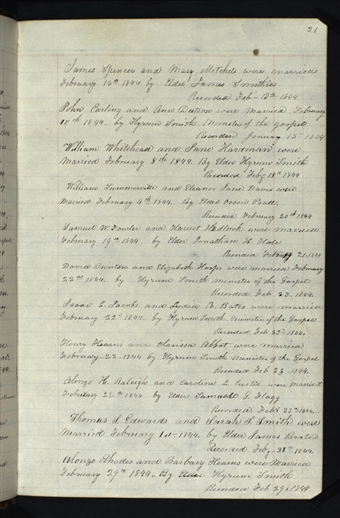 21
James Spencer and Mary Mitchell were married
February 12th 1844 by Elder James Smithies
Recorded Feb 13th 1844
John Carling and Ann Dutton were Married February
by Hyrum Smith Minister of the gospel
Recorded 1844
William Whitehead and Jane Hardman were
Married February 8th 1844. By Elder Hyrum Smith
Recorded Feby 18th 1844
William Summerville and Eleanor Jane Davis were
Married February 4th 1844. By Elder
Recorded February 20th 1844
Samuel W. Fowler and Harriet Hadlock were married
February 19th 1844. by Elder Jonathan H. Hale
Recorded February 21, 1844
David Bunton and Elizabeth Hoops were married February
22nd 1844. by Hyrum Smith minister of the Gospel
Recorded Feb. 23. 1844.
Isaac Jacobs and Lydia were married
February 22d 1844. by Hyrum Smith, Minister of the Gospel
Recorded Feb 23d 1844.
Henry Kearns and Clarissa Abbot were married
February 22. 1844 by Hyrum Smith Minister of the Gospel
Recorded Feb 23. 1844.
Alonzo H. Raleigh and Caroline were Married
February 1844. by Elder
Recorded 1844.
Thomas S. Edwards and Sarah S. Smith were
Married February 1844. by Elder James
Recorded Feby 28th 1844.
Alonzo Rhodes and Barbary Kearns were Married
February 29th 1844. By Elder Hyrum Smith
Recorded Feb 29, 1844